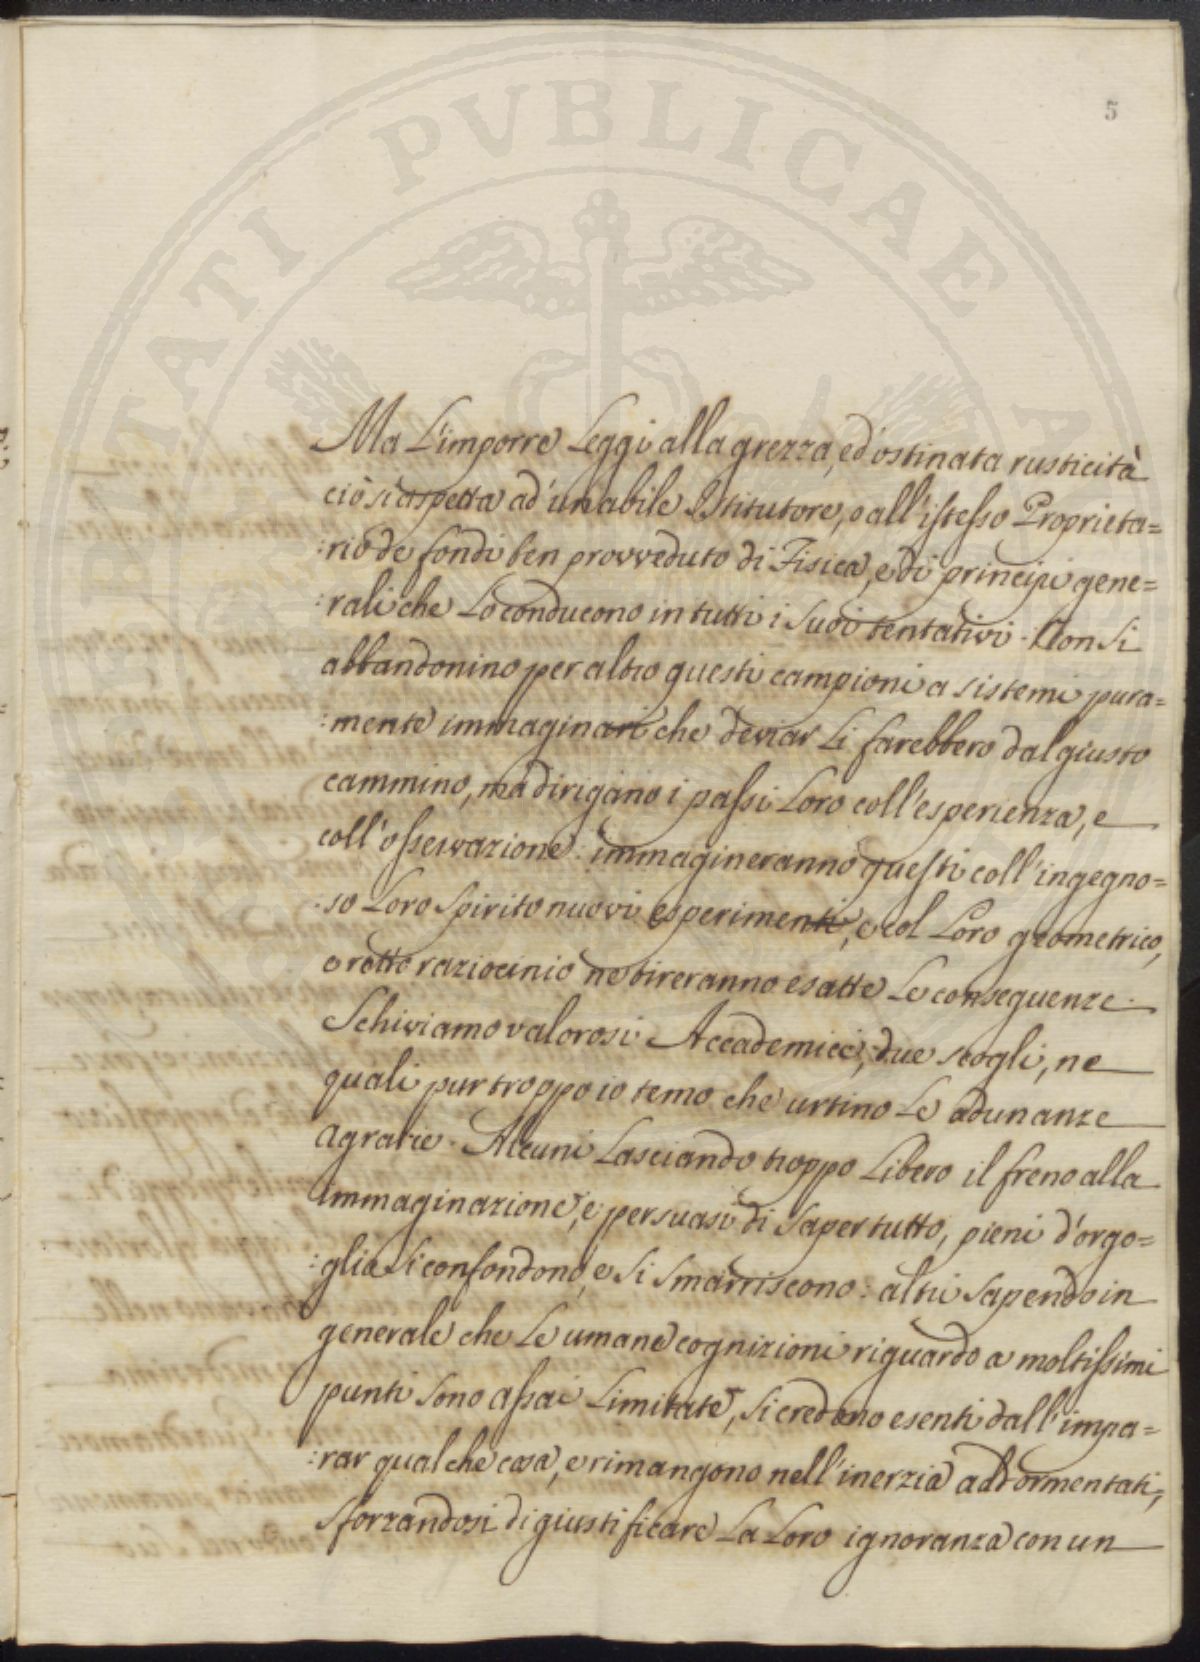 PROSPERITATI PVBLICAE A
5
Ma L'imporre Leggi alla grezza, ed'ostinata rusticità
ciò si aspetta ad' un abile Istitutore, o all'istesso Proprieta=
:rio de fondi ben provveduto di Fisica, e di principi gene=
:rali che Lo conducono in tutti i suoi tentativi. Non si
abbandonino per altro questi campioni a sistemi pura=
:mente immaginari che deviar Li farebbero dal giusto
cammino, ma dirigano i passi Loro coll'esperienza, e
coll'osservazione: immagineranno questi coll'ingegno=
:so Loro Spirito nuovi esperimenti, e col Loro geometrico,
e retto raziocinio ne tireranno esatte Le conseguenze.
Schiviamo valorosi Accademici, due scogli, ne
quali pur troppo io temo che urtino Le adunanze
Agrarie. Alcuni Lasciando troppo Libero il freno alla
immaginazione, e persuasi di saper tutto, pieni d'orgo=
:glio si confondono, e si smarriscono: altri sapendo in
generale che Le umane cognizioni riguardo a moltissimi
punti sono assai Limitate, si credono esenti dall'impa=
:rar qualche cosa, e rimangono nell'inerzia addormentati,
sforzandosi di giustificare La Loro ignoranza con un